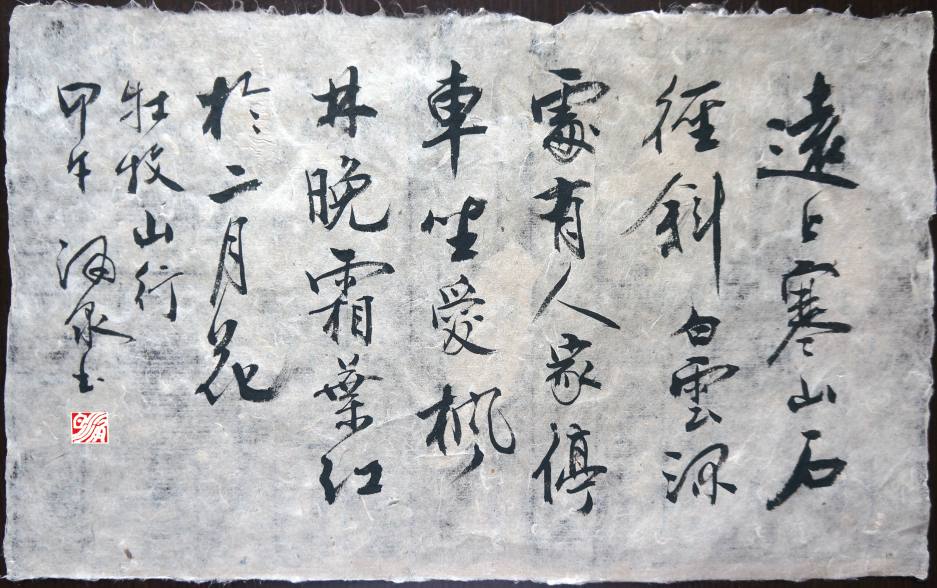 遠上寒山石
徑斜白雲深
處有人家停
車坐愛楓
林晚霜葉紅
於二月花
杜牧山行
甲午 泉书